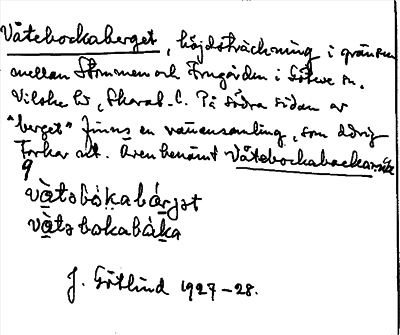 Våtebockaberget, höjdsträckning i gränsen
mellan Stommen och Frugården i Götene sn.
Vilske hd, Skarab. l. På södra sidan av
"berget" finns en vattensamling, som aldrig
torkar ut. Även benämt Våtebockabackarna
våtəbòkabárjət
våtə bokabàka
J. Götlind 1927-28.